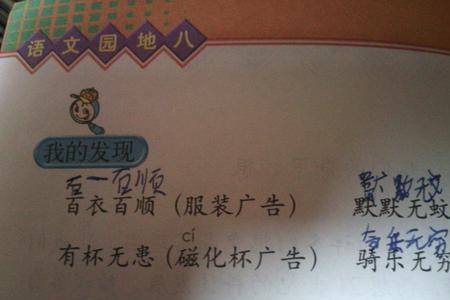 语文园地八
我的发现
百一百顺
百衣百顺（服装广告） 默默无蚊
cí 无穷
有杯无患（磁化杯广告） 骑乐无穷